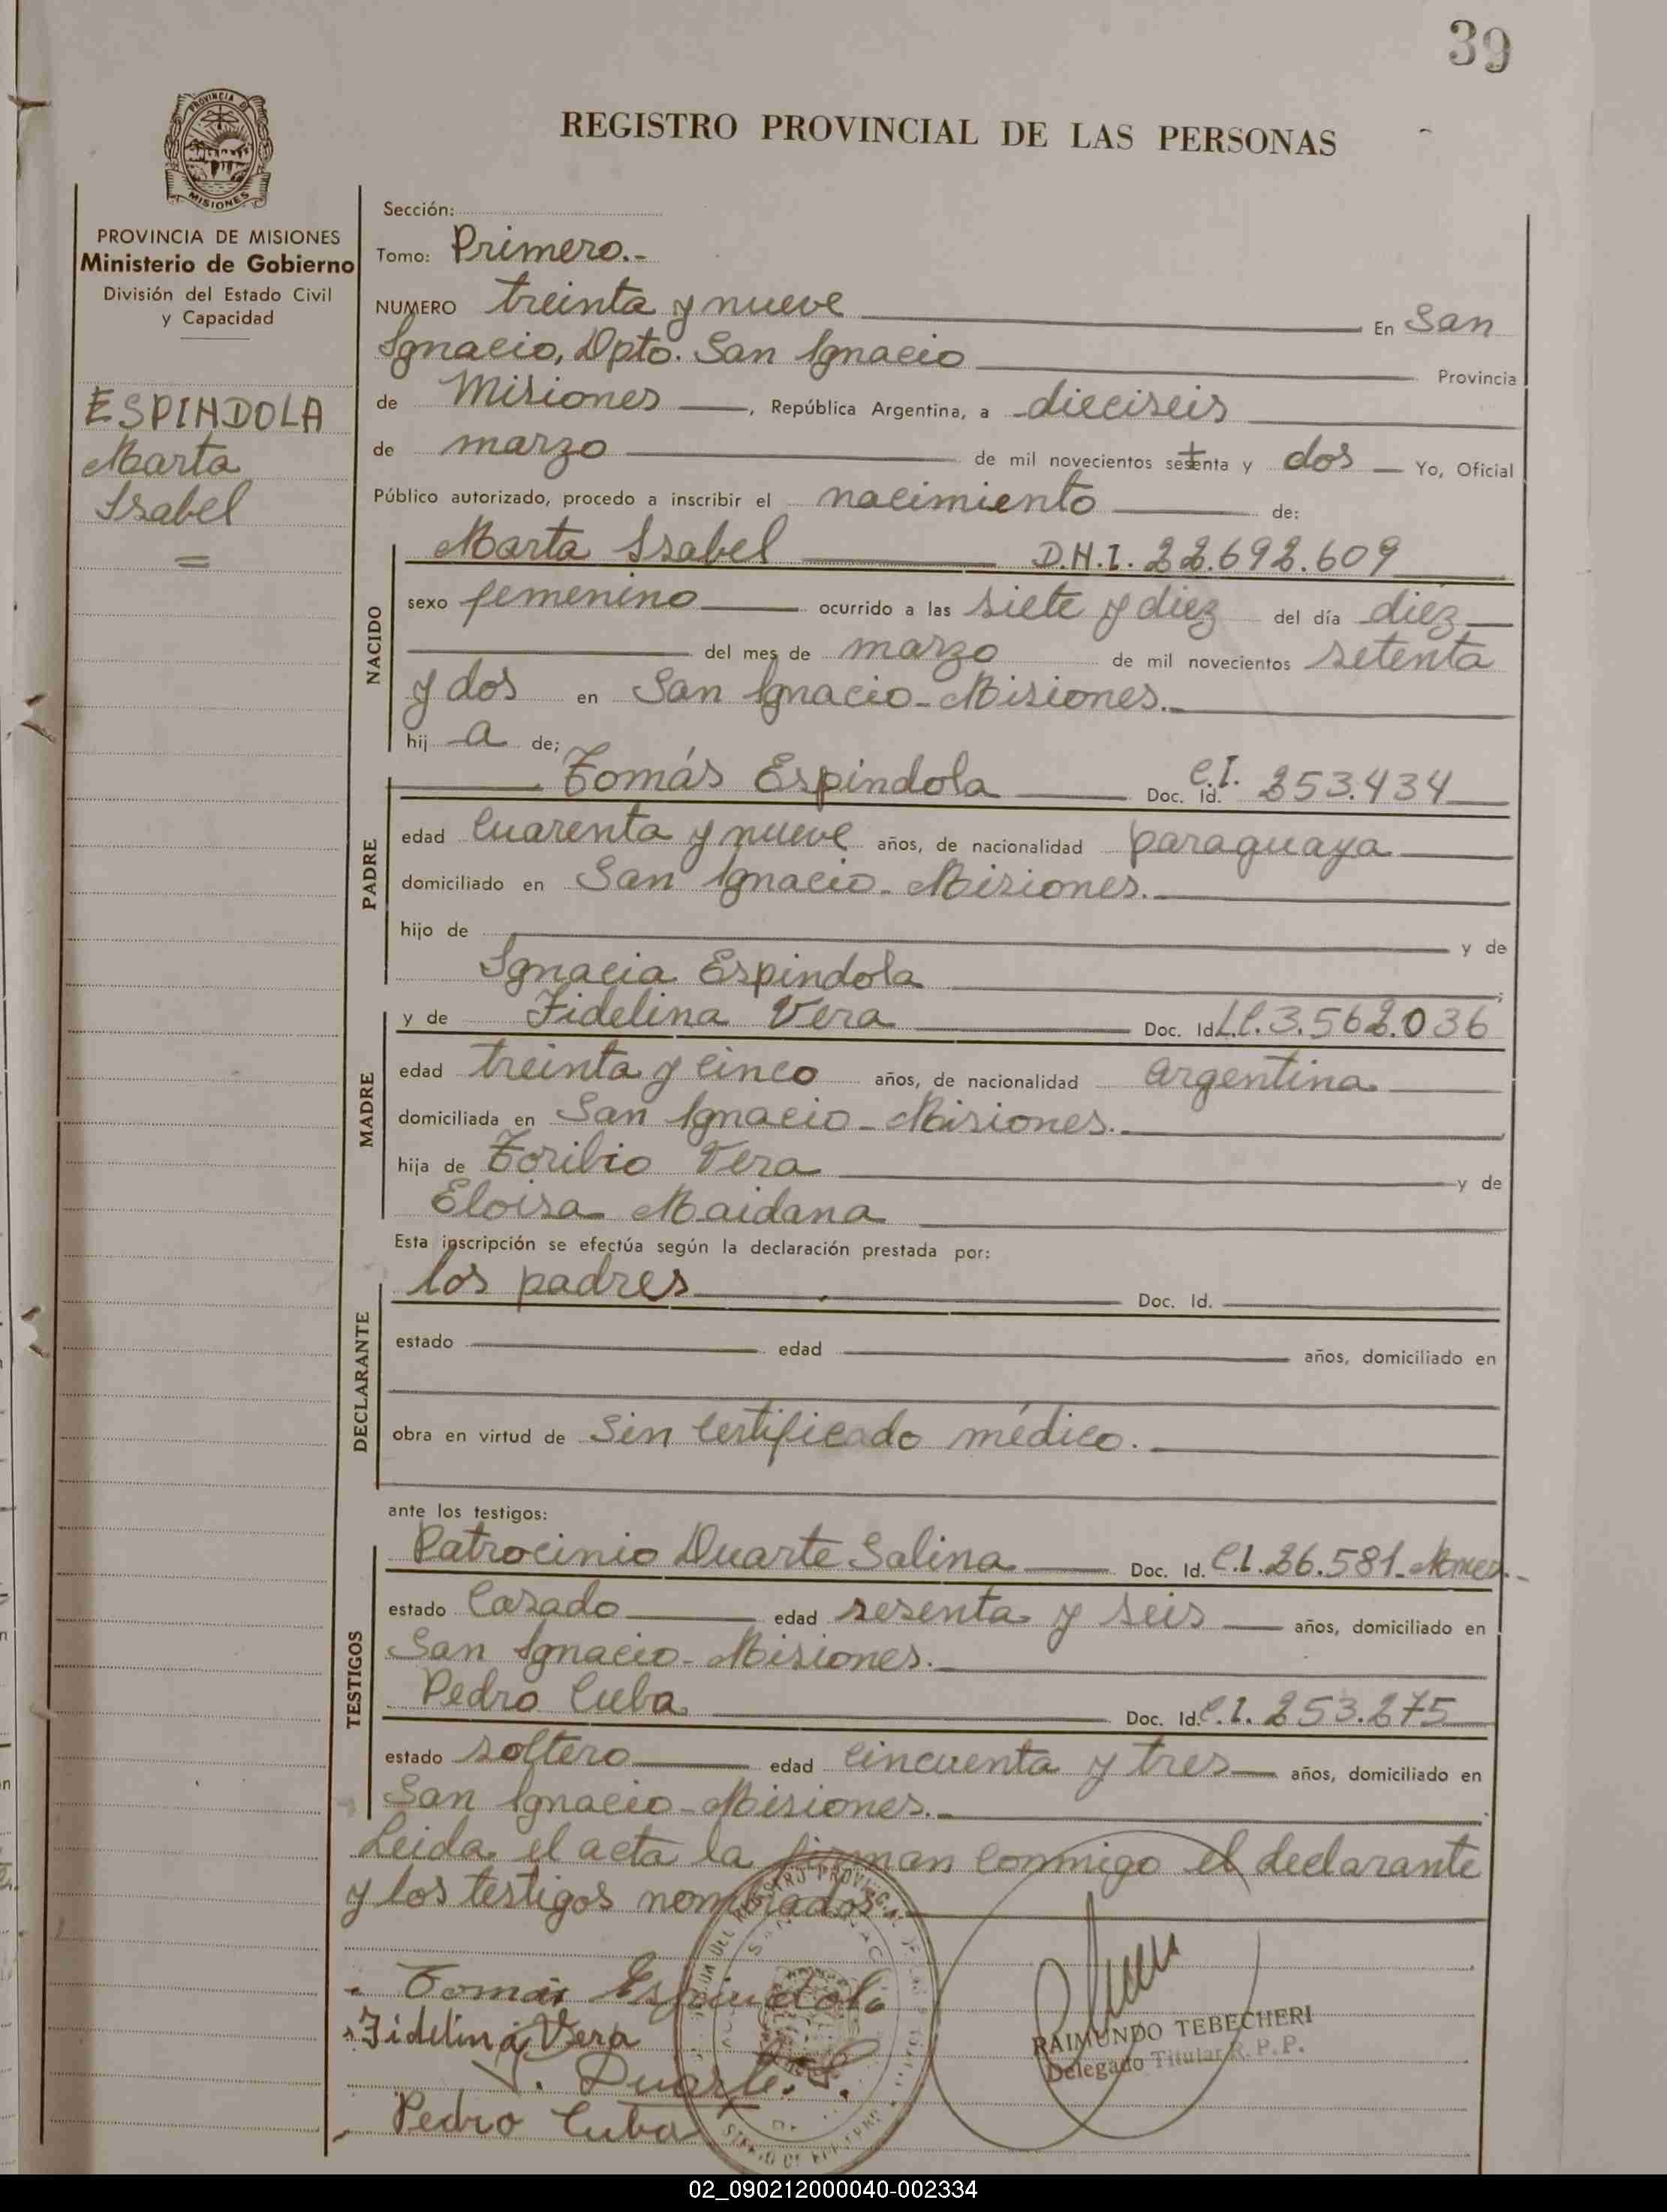 39
PROVINCIA DE
MISIONES
REGISTRO PROVINCIAL DE LAS PERSONAS
PROVINCIA DE MISIONES
Ministerio de Gobierno
División del Estado Civil
y Capacidad
ESPINDOLA
Marta
Isabel
=
Sección:
Tomo: Primero.-
NUMERO treinta y nueve En San
Ignacio, Dpto. San Ignacio Provincia
de Misiones, República Argentina, a dieciseis
de marzo de mil novecientos setenta y dos Yo, Oficial
Público autorizado, procedo a inscribir el nacimiento de:
NACIDO
Marta Isabel D.N.I. 22.692.609
sexo femenino ocurrido a las siete y diez del día diez
del mes de marzo de mil novecientos setenta
y dos en San Ignacio-Misiones.
hij a de;
PADRE
Tomás Espindola Doc. Id. C.I. 253.434
edad cuarenta y nueve años, de nacionalidad paraguaya
domiciliado en San Ignacio-Misiones.
hijo de y de
Ignacia Espindola
MADRE
y de Fidelina Vera Doc. Id. L.C. 3.562.036
edad treinta y cinco años, de nacionalidad argentina
domiciliada en San Ignacio-Misiones.
hija de Toribio Vera y de
Eloisa Maidana
Esta inscripción se efectúa según la declaración prestada por:
DECLARANTE
los padres Doc. Id.
estado edad años, domiciliado en
obra en virtud de sin certificado médico.
ante los testigos:
TESTIGOS
Patrocinio Duarte Salina Doc. Id. C.I. 26.581-Mnes.-
estado casado edad sesenta y seis años, domiciliado en
San Ignacio-Misiones.
Pedro Cuba Doc. Id. C.I. 253.275
estado soltero edad cincuenta y tres años, domiciliado en
San Ignacio-Misiones.
Leida el acta la firman conmigo el declarante
y los testigos nombrados.
Tomás Espindola
Fidelina Vera
Duarte. S.
Pedro Cuba
RAIMUNDO TEBECHERI
Delegado Titular R. P. P.
02_090212000040-002334